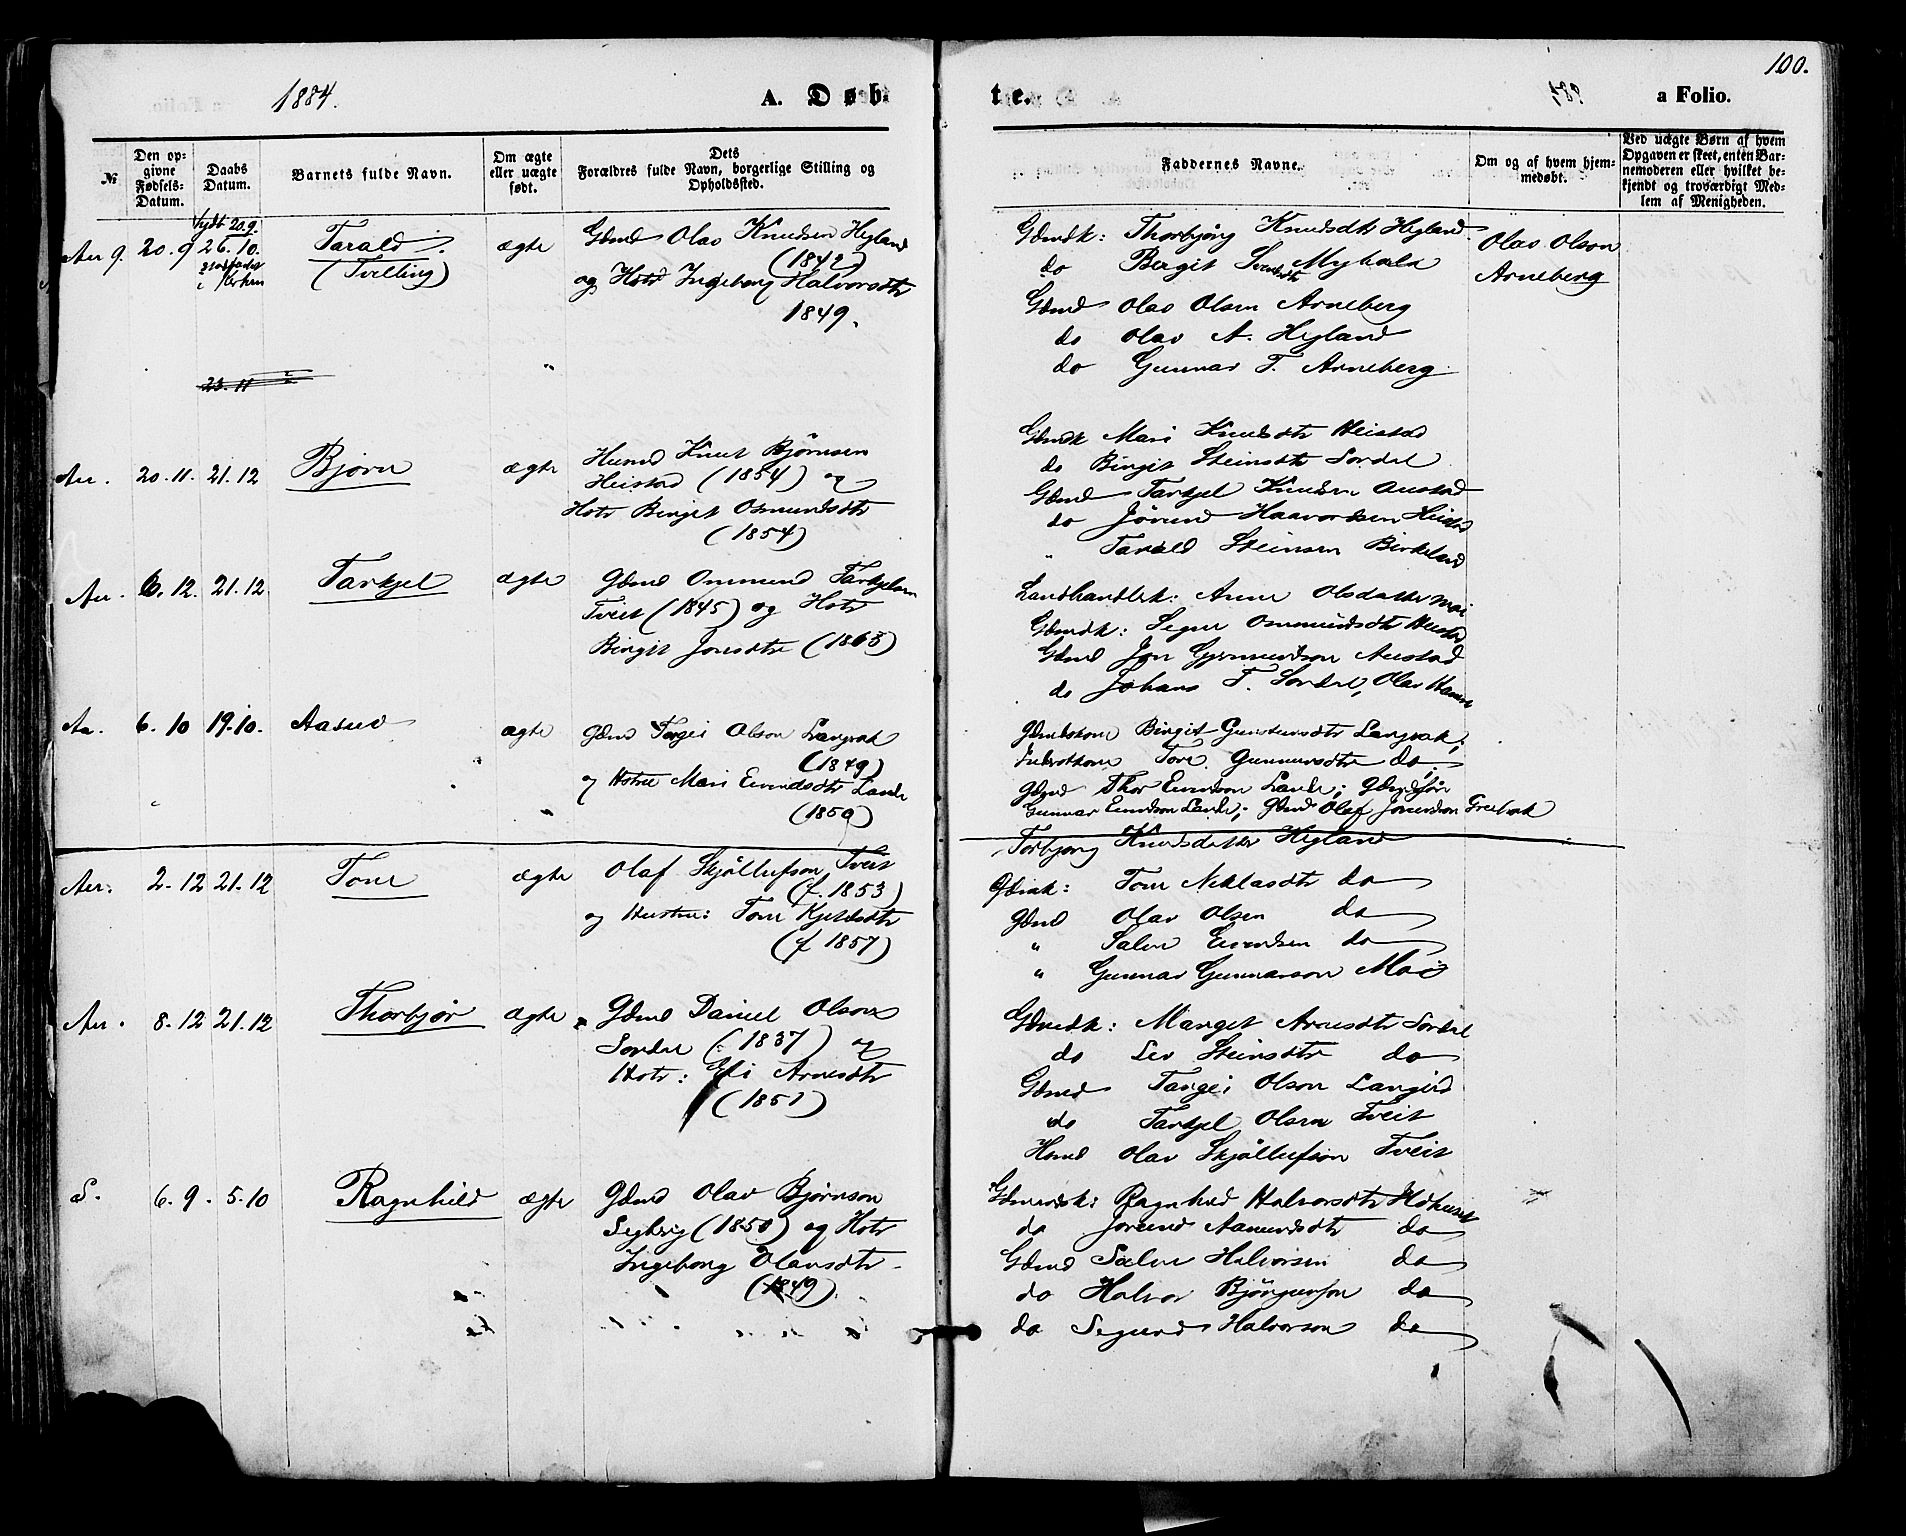 1884.
A. Døb-
te.
a Folio.
100.
№
Den op-
givne
Fødsels-
Datum.
Daabs
Datum.
Barnets fulde Navn.
Om ægte
eller uægte
født.
Dets
Forældres fulde Navn, borgerlige Stilling og
Opholdssted.
Faddernes Navne.
Om og af hvem hjem-
medøbt.
Ved uægte Børn af hvem
Opgaven er skeet, enten Bar-
nemoderen eller hvilket be-
kjendt og troværdigt Med-
lem af Menigheden.
20.9.
20.9 26.10. Tarald. ægte Gbmd Olav Knudsen Hegland
i Kirken (Tvilling) (1842)
og Hstr Ingeborg Halvorsdtr
1849.
Gbmdk: Thorbjørg Knudsdtr Hegland
do Bergit Svensdtr
Gbmd Olav Olsen Arneberg
do Olav A. Hegland
do Gunnar T. Arneberg
Olav Olson
Arneberg
23.11
20.11. 21.12 Bjørn ægte Husmd Knut Bjørnsen
Heistad (1854) og
Hstr Birgit Osmundsdtr
(1854)
Gbmdk Mari Knudsdtr Heistad
do Birgit Steinsdtr Sordal
Gbmd Tarkjel Knudsen Austad
do Jørund Haavordsen
" Tarald Steinsen Birkeland
6.12. 21.12 Tarkjel ægte Gbmd Ommund Tarkjelsen
Tveit (1845) og Hstr
Birgit Jonsdtr (1863)
Landhandlerk: Anne Olsdatter Moi
Gbmdk: Signe Ommundsdtr
Gbmd Jon Austad
do Johans T. Sordal, Olav
6.10 19.10. Aasuv ægte Gbmd Targei Olson Langerak
(1849)
og Hstru Mari Eivindsdtr Lande
(1850)
Gbmdskone Birgit Gunstensdtr Langerak;
Tore Gunnarsdtr do;
Gbmd Thor Eivindson Lande;
Gunnar Eivindson Lande; Gbmd Olaf
Aer. 2.12 21.12 Tone ægte Olaf Skjøllufson Tveit
(f. 1853)
og Hustru: Tone Kjeldsdtr
(f 1857)
Torbjørg Knudsdatter Hegland
Tone Neklasdtr do
Gbmd Olav Olsen do
" Salve Eivindsen do
" Gunnar Gunnarson Moi
8.12 21.12 Thorbjør ægte Gbmd Daniel Olson
Sordal (1837) og
Hstr: Arnesdtr
(1851)
Gbmdk: Marget Arnesdtr Sordal
do Liv Steinsdtr do
Gbmd Targei Olson
do Tarkjel Olsen Tveit
Hsmd Olav Skjøllufson Tveit
S. 6.9. 5.10 Ragnhild ægte Gbmd Olav Bjørnson
(1850) og Hstr
Ingeborg Olavsdtr
(1849)
Gbmdsk: Ragnhild Halvorsdtr
do Jorund Aamundsdtr do
Gbmd Salve Halvorsen do
do Halvor Bjørgunson do
do Sigurd Halvorson do